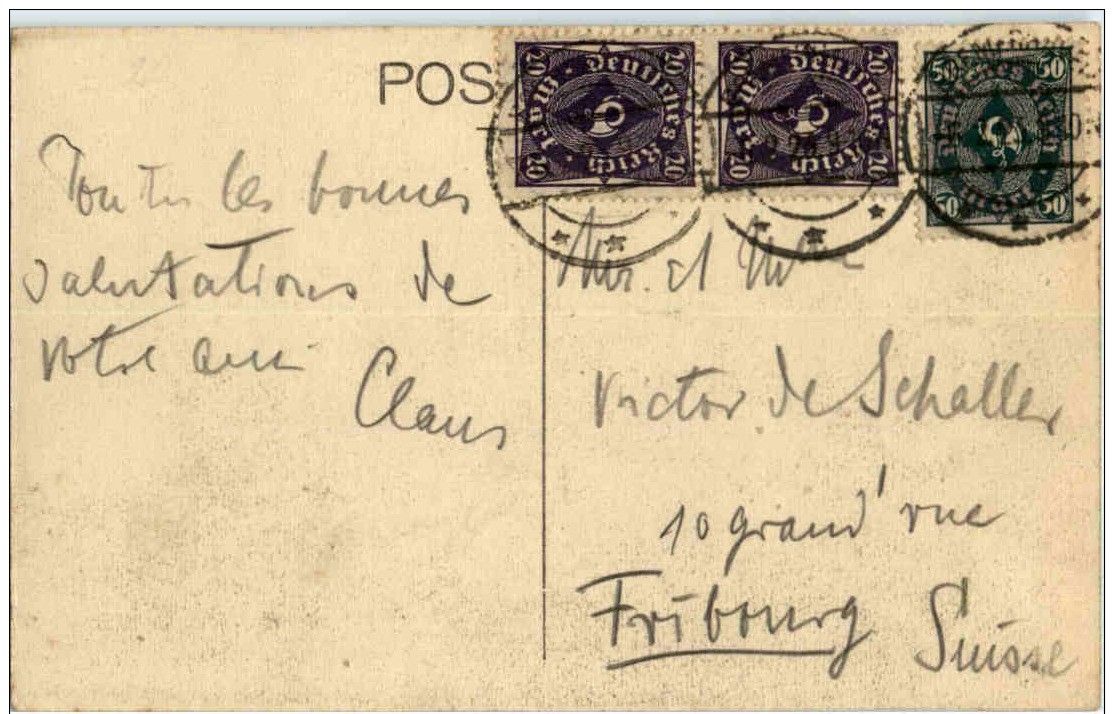 POS
20 Deutsches Reich 20
20 Mark 20
20 Deutsches Reich 20
20 Mark 20
50 Deutsches Reich 50
50 Mark 50
Toutes les bonnes
salutations de
votre ami
Claus
Mr. et Mme
Victor de Schaller
10 grand'rue
Fribourg
Suisse